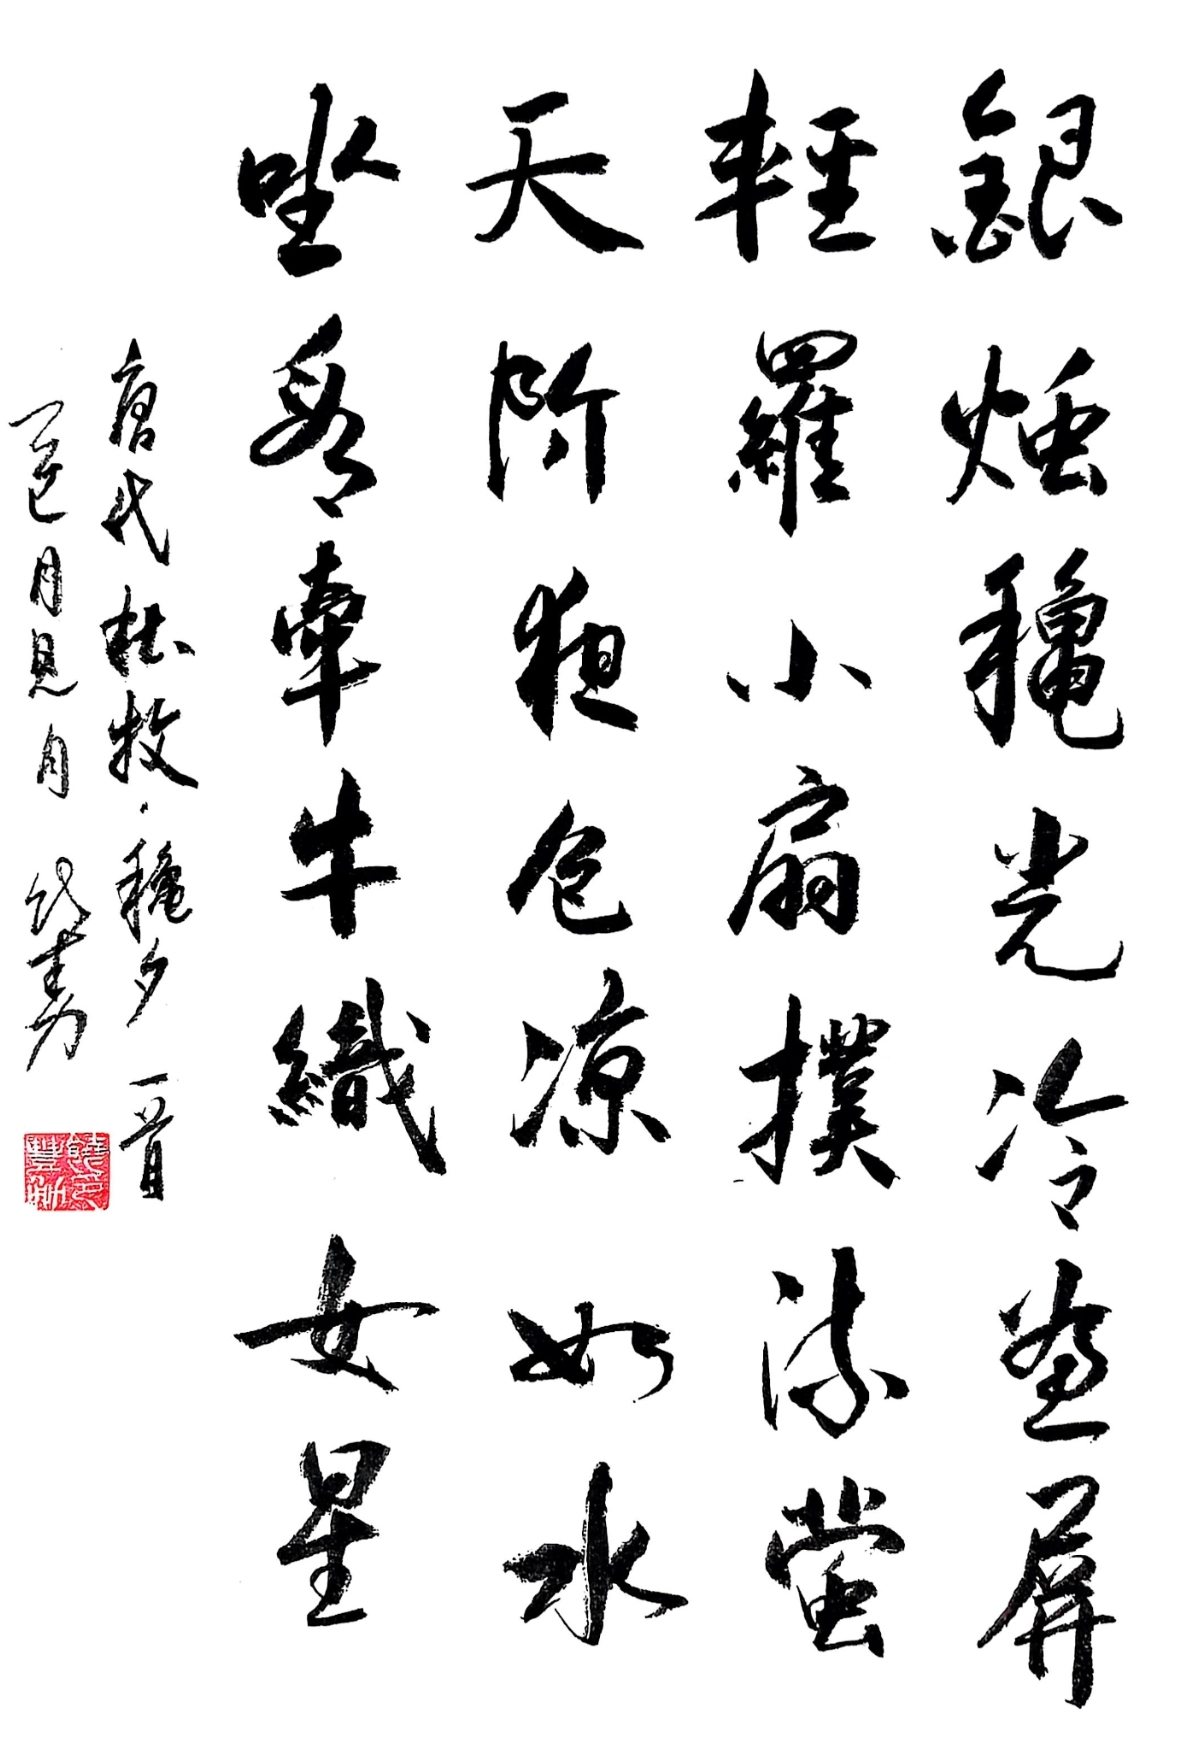 銀烛穐光冷畫屏
輕羅小扇撲流螢
天阶夜色凉如水
坐看牽牛織女星
唐代杜牧·穐夕一首
乙巳月見月